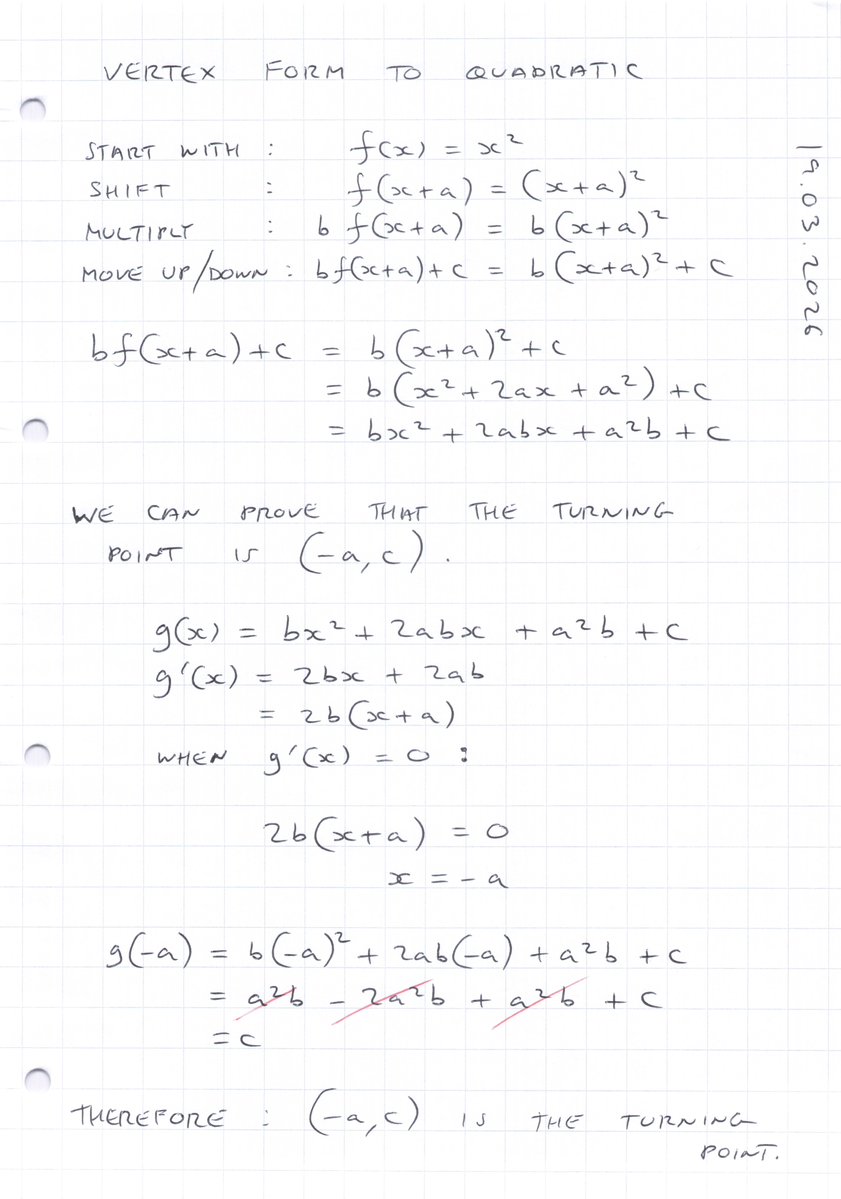 VERTEX FORM TO QUADRATIC
19.03.2026
START WITH : f(x) = x²
SHIFT : f(x+a) = (x+a)²
MULTIPLY : b f(x+a) = b(x+a)²
MOVE UP/DOWN : bf(x+a)+c = b(x+a)² + c
bf(x+a)+c = b(x+a)² + c
= b(x² + 2ax + a²) + c
= bx² + 2abx + a²b + c
WE CAN PROVE THAT THE TURNING
POINT IS (-a, c).
g(x) = bx² + 2abx + a²b + c
g'(x) = 2bx + 2ab
= 2b(x+a)
WHEN g'(x) = 0 :
2b(x+a) = 0
x = -a
g(-a) = b(-a)² + 2ab(-a) + a²b + c
= a²b - 2a²b + a²b + c
= c
THEREFORE : (-a, c) IS THE TURNING
POINT.